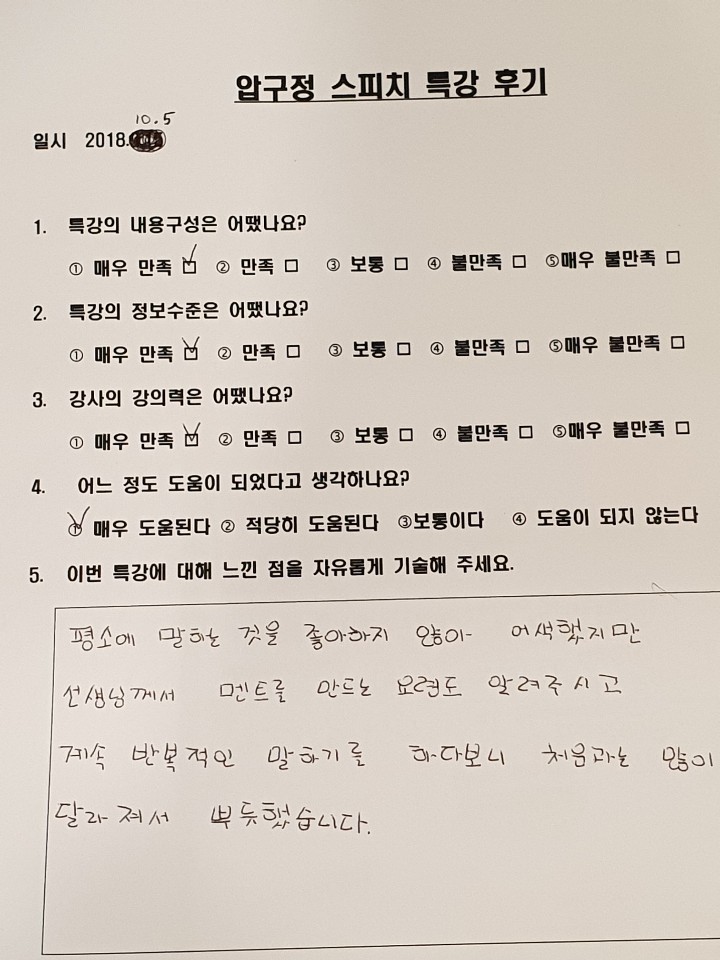 압구정 스피치 특강 후기
10.5
일시 2018.
1. 특강의 내용구성은 어땠나요?
① 매우 만족 ☑ ② 만족 □ ③ 보통 □ ④ 불만족 □ ⑤매우 불만족 □
2. 특강의 정보수준은 어땠나요?
① 매우 만족 ☑ ② 만족 □ ③ 보통 □ ④ 불만족 □ ⑤매우 불만족 □
3. 강사의 강의력은 어땠나요?
① 매우 만족 ☑ ② 만족 □ ③ 보통 □ ④ 불만족 □ ⑤매우 불만족 □
4. 어느 정도 도움이 되었다고 생각하나요?
① 매우 도움된다 ② 적당히 도움된다 ③보통이다 ④ 도움이 되지 않는다
5. 이번 특강에 대해 느낀 점을 자유롭게 기술해 주세요.
평소에 말하는 것을 좋아하지 않아 어색했지만
선생님께서 멘트를 만드는 요령도 알려주시고
계속 반복적인 말하기를 하다보니 처음과는 많이
달라져서 뿌듯했습니다.